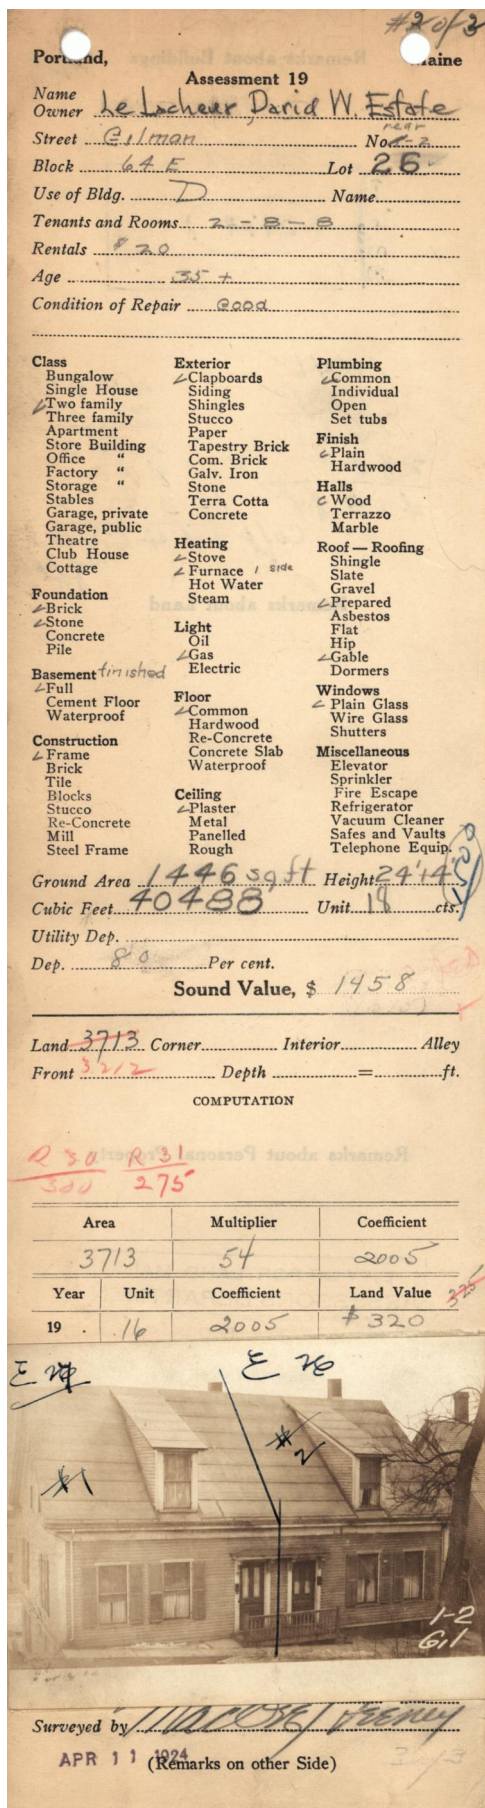 #2 of 3
Portland, Maine
Assessment 19
Name
Owner Le Lacheur, David W. Estate
Street Gilman No. rear 1-2
Block 64 E Lot 26
Use of Bldg. D Name
Tenants and Rooms 2 - 8 - 8
Rentals $ 20
Age 35 +
Condition of Repair Good
Class
Bungalow
Single House
✓Two family
Three family
Apartment
Store Building
Office "
Factory "
Storage "
Stables
Garage, private
Garage, public
Theatre
Club House
Cottage
Foundation
✓Brick
✓Stone
Concrete
Pile
Basement finished
✓Full
Cement Floor
Waterproof
Construction
✓Frame
Brick
Tile
Blocks
Stucco
Re-Concrete
Mill
Steel Frame
Exterior
✓Clapboards
Siding
Shingles
Stucco
Paper
Tapestry Brick
Com. Brick
Galv. Iron
Stone
Terra Cotta
Concrete
Heating
✓Stove
✓Furnace 1 side
Hot Water
Steam
Light
Oil
✓Gas
Electric
Floor
✓Common
Hardwood
Re-Concrete
Concrete Slab
Waterproof
Ceiling
✓Plaster
Metal
Panelled
Rough
Plumbing
✓Common
Individual
Open
Set tubs
Finish
✓Plain
Hardwood
Halls
✓Wood
Terrazzo
Marble
Roof — Roofing
Shingle
Slate
Gravel
✓Prepared
Asbestos
Flat
Hip
✓Gable
Dormers
Windows
✓Plain Glass
Wire Glass
Shutters
Miscellaneous
Elevator
Sprinkler
Fire Escape
Refrigerator
Vacuum Cleaner
Safes and Vaults
Telephone Equip.
Ground Area 1446 sq ft Height 24'14'
Cubic Feet 40488 Unit 18 cts.
Utility Dep.
Dep. 80 Per cent.
Sound Value, $ 1458
Land 3713 Corner Interior Alley
Front 3212 Depth = ft.
COMPUTATION
R 30 R 31
300 275
Area Multiplier Coefficient
3713 54 2005
Year Unit Coefficient Land Value 325
19 . .16 2005 $ 320
E 26
#1 #2
1-2
Gil
Surveyed by Feeney
APR 11 1924 (Remarks on other Side)
3 of 3